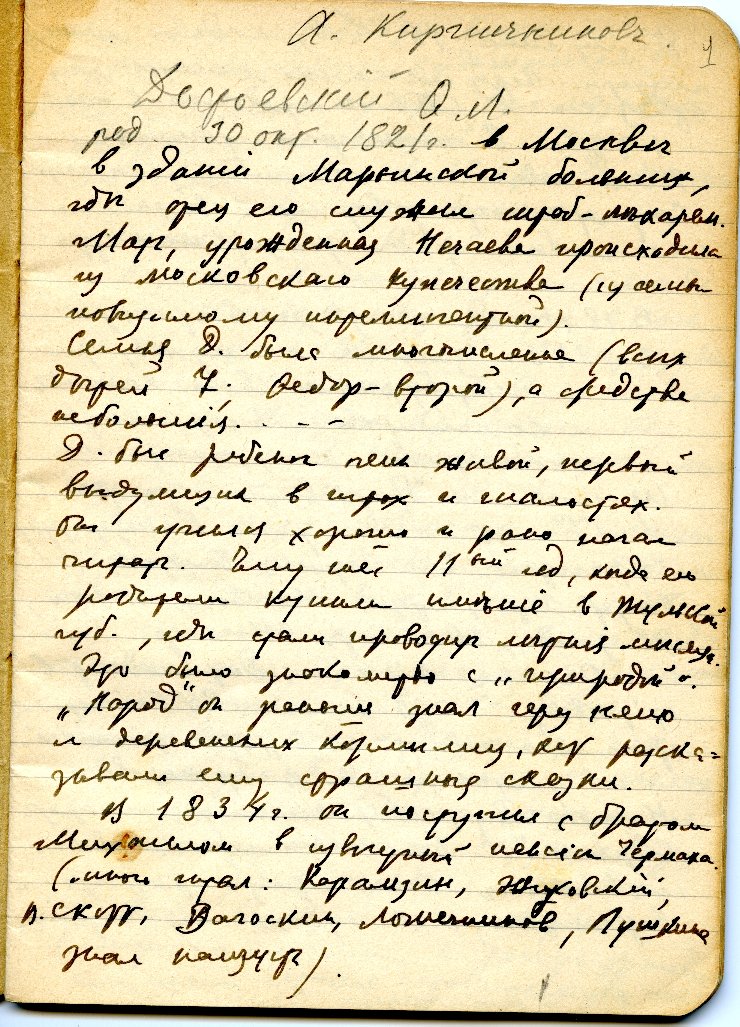 А. Кирпичников.
1
Достоевскій Ѳ М.
род 30 окт. 1821г. в Москвѣ
в зданіи Марьинской больницы,
гдѣ отец его служил штаб-лѣкарем.
Мать, урожденная Нечаева происходила
из московскаго купечества (из семьи
повидимому интеллигентной).
Семья Д. была многочисленна (всѣх
дѣтей 7; Ѳедор – второй), а средства
небольшія. . – –
Д. был ребенок очень живой, первый
выдумщик в играх и шалостях.
Он учился хорошо и рано начал
читать. Ему шел 11ый год, когда его
родители купили имѣніе в Тульской
губ., гдѣ стали проводить лѣтніе мѣсяцы.
Это было знакомство с „природой“.
„Народ“ он раньше знал через няню
и деревенских кормилиц, кот расска=
зывали ему страшные сказки.
В 1834г. он поступил с братом
Михаилом в извѣстный пансіон Чермака.
(много читал: Карамзин, Жуковскій,
В. Скотт, Загоскин, Лажечников, Пушкина
знал наизусть).